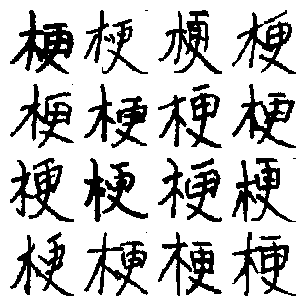 梗梗梗梗
梗梗梗梗
梗梗梗梗
梗梗梗梗